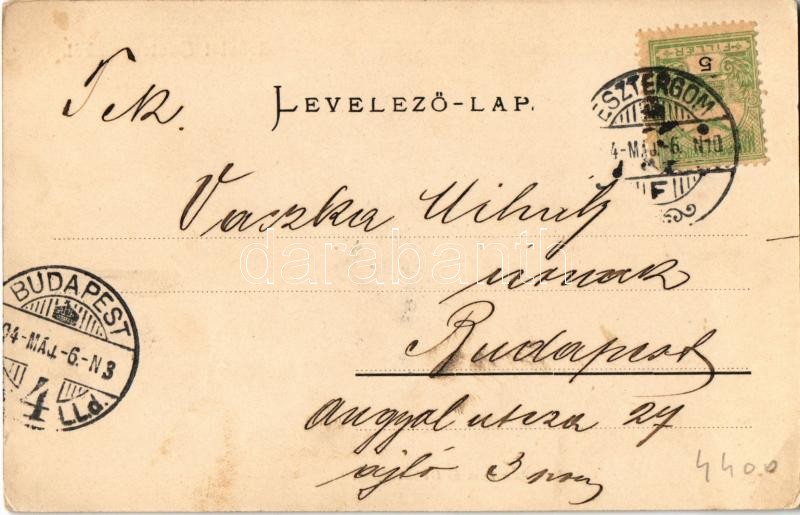 FILLÉR
5
Tek.
LEVELEZŐ-LAP.
ESZTERGOM
4-MÁJ.-6. N10
F
Vaszka Mihály
darabanth
úrnak
BUDAPEST
04-MÁJ.-6.-N3
4 LLd.
Budapest
Angyal utcza 27
ajtó 3
4400